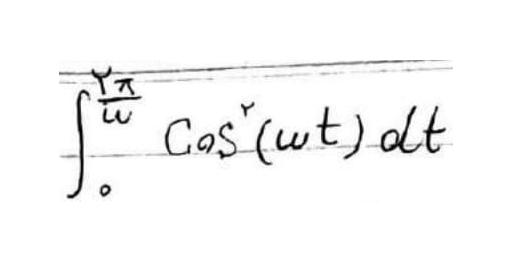 ∫₀^(۲π/ω) Cos^۲(ωt) dt